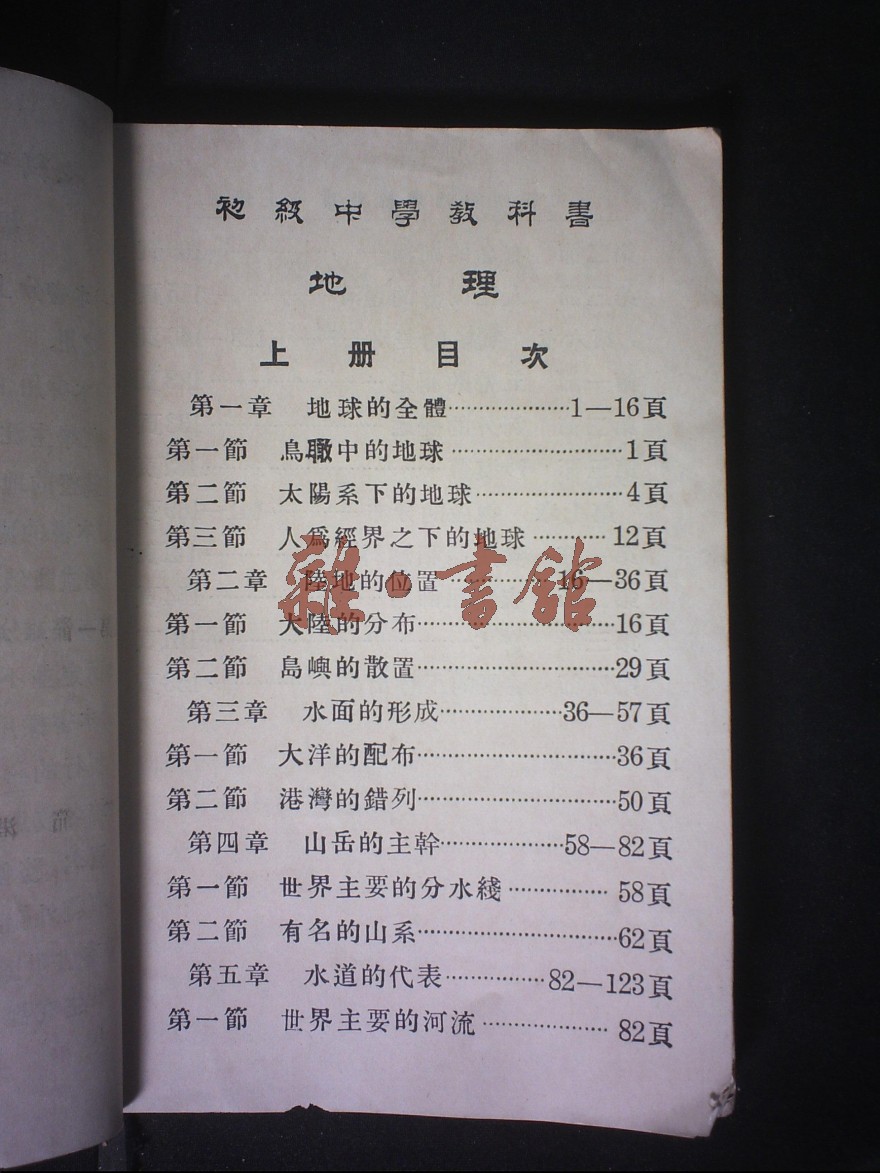 初級中學教科書
地理
上册目次
第一章 地球的全體····················1—16頁
第一節 鳥瞰中的地球····························1頁
第二節 太陽系下的地球························4頁
第三節 人爲經界之下的地球············12頁
第二章 陸地的位置················16—36頁
第一節 大陸的分布································16頁
第二節 島嶼的散置································29頁
第三章 水面的形成····················36—57頁
第一節 大洋的配布································36頁
第二節 港灣的錯列································50頁
第四章 山岳的主幹····················58—82頁
第一節 世界主要的分水綫················58頁
第二節 有名的山系································62頁
第五章 水道的代表················82—123頁
第一節 世界主要的河流····················82頁
雜·書館